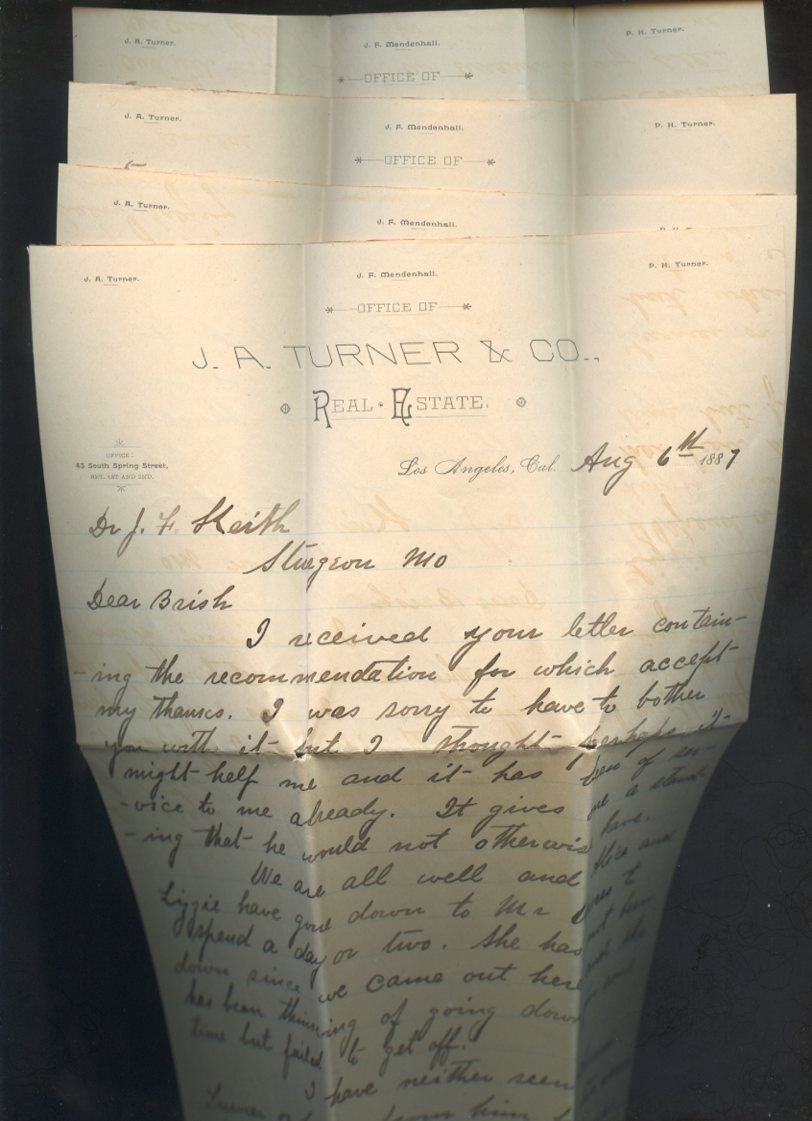 J. A. Turner.
J. F. Mendenhall.
P. H. Turner.
OFFICE OF
J. A. Turner.
J. F. Mendenhall.
P. H. Turner.
OFFICE OF
J. A. Turner.
J. F. Mendenhall.
J. A. Turner.
J. F. Mendenhall.
P. H. Turner.
OFFICE OF
J. A. TURNER & CO.,
REAL ESTATE.
OFFICE:
43 South Spring Street,
BET. 1ST AND 2ND.
Los Angeles, Cal. Aug 6th 1887
Dr J. F. Keith
Sturgeon Mo
Dear Brish
I received your letter contain-
-ing the recommendation for which accept
my thanks. I was sorry to have to bother
you with it but I thought perhaps it
might help me and it has been of ser-
-vice to me already. It gives me a stand-
-ing that he would not otherwise have.
We are all well and Alice and
Lizzie have gone down to Mr
spend a day or two. She has not been
down since we came out here
has been thinking of going down
time but failed to get off.
I have neither seen
Turner from him